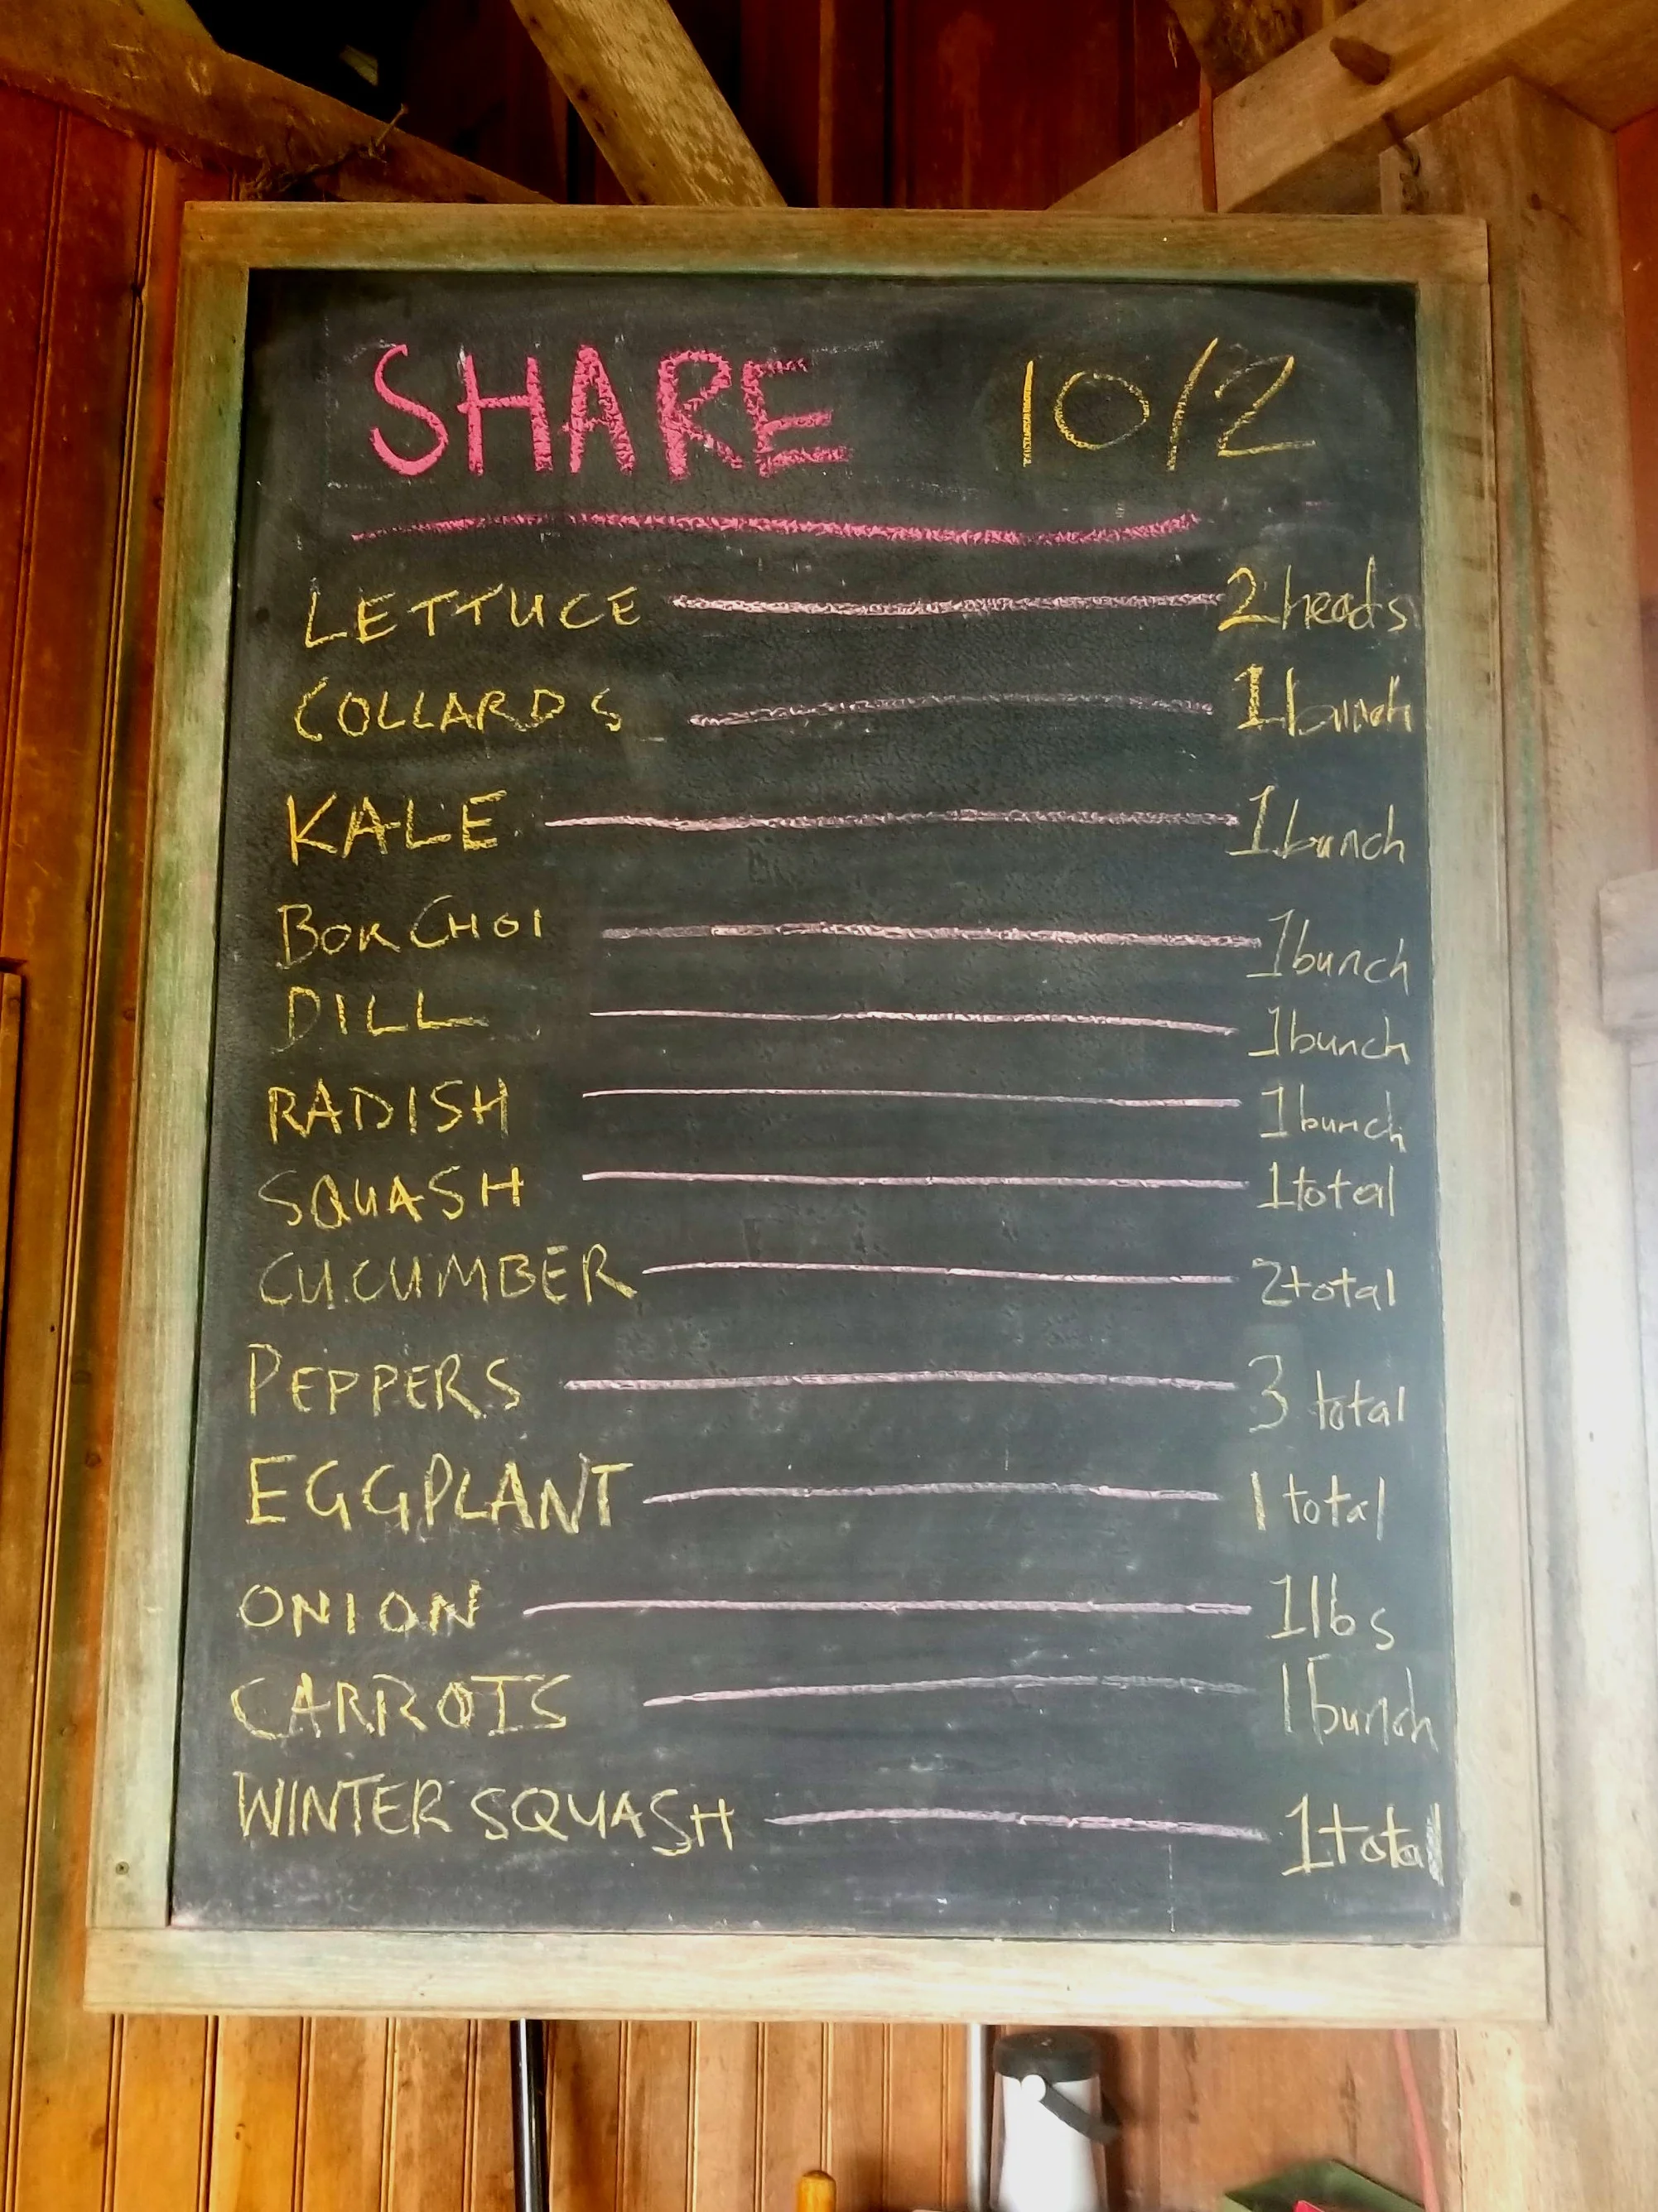 SHARE 10/2
LETTUCE 2 heads
COLLARDS 1 bunch
KALE 1 bunch
BOK CHOI 1 bunch
DILL 1 bunch
RADISH 1 bunch
SQUASH 1 total
CUCUMBER 2 total
PEPPERS 3 total
EGGPLANT 1 total
ONION 1 lbs
CARROTS 1 bunch
WINTER SQUASH 1 total